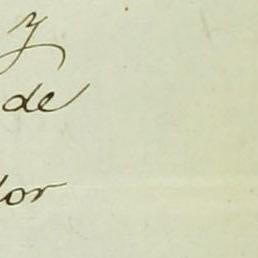 y
de
dor